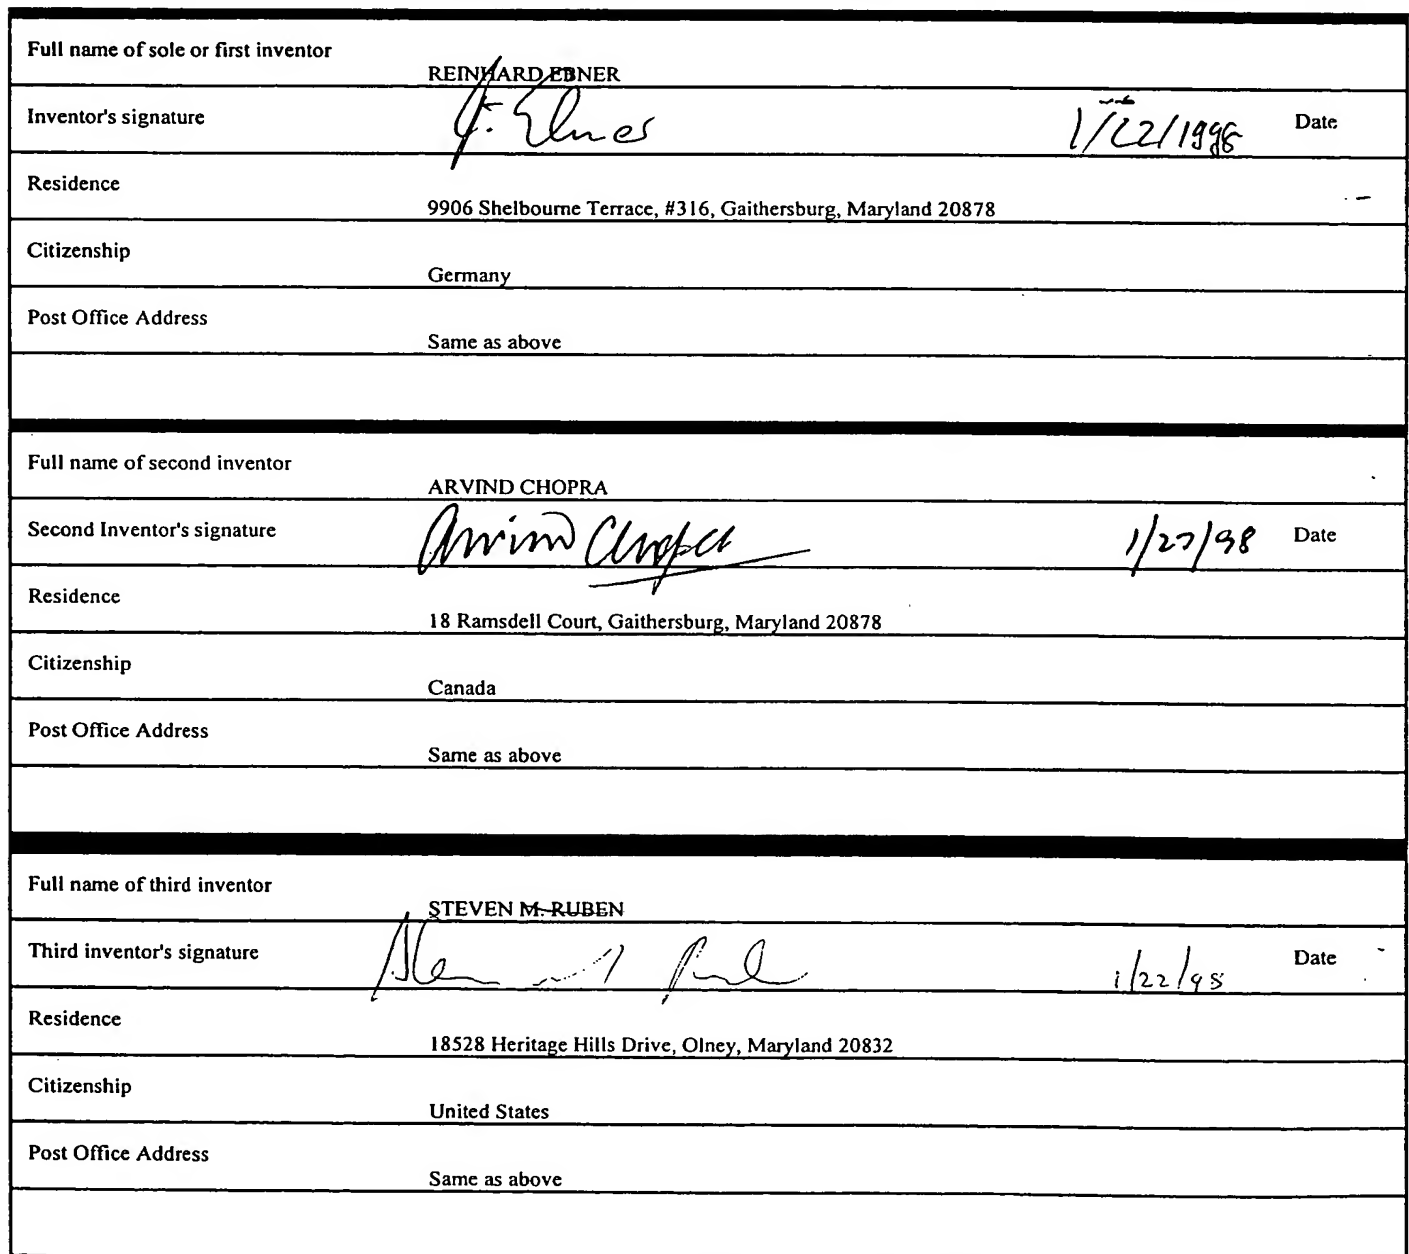 Full name of sole or first inventor
REINHARD EBNER
Inventor's signature 1/22/1998 Date
Residence
9906 Shelbourne Terrace, #316, Gaithersburg, Maryland 20878
Citizenship
Germany
Post Office Address
Same as above
Full name of second inventor
ARVIND CHOPRA
Second Inventor's signature Arvind Chopra 1/27/98 Date
Residence
18 Ramsdell Court, Gaithersburg, Maryland 20878
Citizenship
Canada
Post Office Address
Same as above
Full name of third inventor
STEVEN M. RUBEN
Third inventor's signature 1/22/98 Date
Residence
18528 Heritage Hills Drive, Olney, Maryland 20832
Citizenship
United States
Post Office Address
Same as above